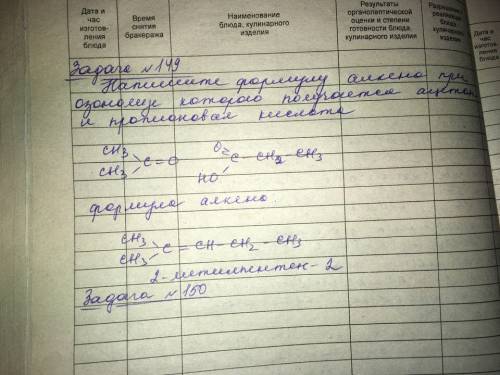 Дата и час изготов-ления блюда
Время снятия бракеража
Наименование блюда, кулинарного изделия
Результаты органолептической оценки и степени готовности блюда, кулинарного изделия
Разрешение к реализации блюда, кулинарного изделия
Задача №149
Напишите формулу алкена при
озонолизе которого получается ацетон
и пропионовая кислота
CH3 O
C=O C-CH2-CH3
CH3 HO
формула алкена.
CH3
C=CH-CH2-CH3
CH3
2-метилпентен-2
Задача №150